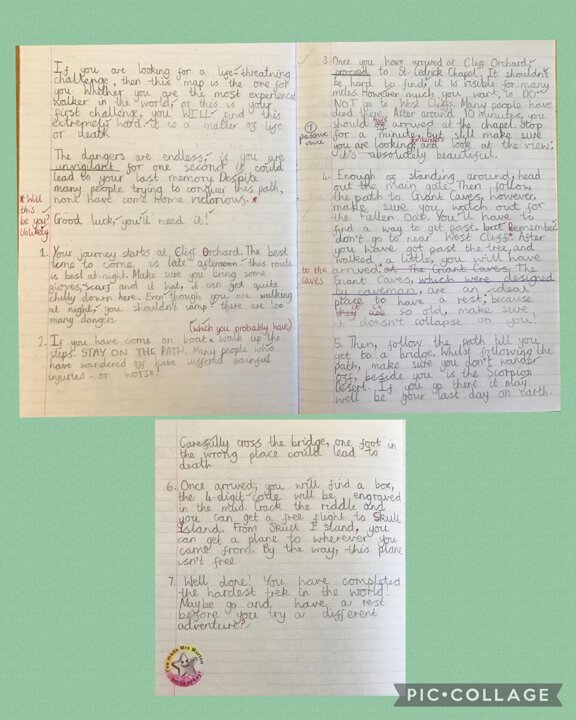 If you are looking for a life-threatning
challenge, then this map is the one for
you. Whether you are the most experienced
walker in the world, or this is your
first challenge, you WILL find this
extremely hard. it is a matter of life
or death.
The dangers are endless, is you are
unvigilant for one second it could
lead to your last memory. Despite
many people trying to conquer this path,
none have come some victorious. *
* Will
this
be you?
Unlikely
Good luck, you'll need it!
1. Your journey starts at Cliff Orchard. The best
time to come is late afternoon - this route
is best at night. Make sure you bring some
gloves, scarf and it hat, it can get quite
chilly down here. Even though you are walking
at night, you shouldn't camp - there are too
many dangers.
(which you probably have)
2. If you have come on boat, walk up the
steps. STAY ON THE PATH. Many people who
have wandered off have suffered painful
injuries - or WORSE!
3. Once you have arrived at Cliff Orchard,
proceed to St. Cedrick Chapel. It shouldn't
be hard to find, it is visible for many
miles. However much you want to DO
NOT go to West Cliffs. Many people have
died there. After around 10 minutes, you
should arrived at the chapel. Stop
for a minute, but still make sure
you are looking and look at the view:
it's absolutely beautiful.
passive
voice
4. Enough of standing around, head
out the main gate. Then follow
the path to Giant Caves, however,
make sure you watch out for
the Fallen Oak. You'll have to
find a way to get past but Remember
don't go to near West Cliffs. After
you have got past the tree and
walked a little, you will have
arrived, at the Giant Caves. The
to the
caves
Giant Caves, which were designed
by caveman, are an ideal
place to have a rest; because
they are so old, make sure
it doesn't collapse on you!
5. Then, follow the path till you
get to a bridge. Whilst following the
path, make sure you don't wander
off, beside you is the Scorpion
Desert. If you go there it may
well be your last day on Earth.
Carefully cross the bridge, one foot in
the wrong place could lead to
death.
6. Once arrived, you will find a box,
the 4-digit code will be engraved
in the mud. Crack the riddle and
you can get a free flight to Skull
Island. From Skull Island, you
can get a plane to wherever you
came from. By the way, this plane
isn't free.
7. Well done! You have completed
the hardest trek in the world!
Maybe go and have a rest
before you try a different
adventure?
I've made Mrs
smile today!
PIC•COLLAGE